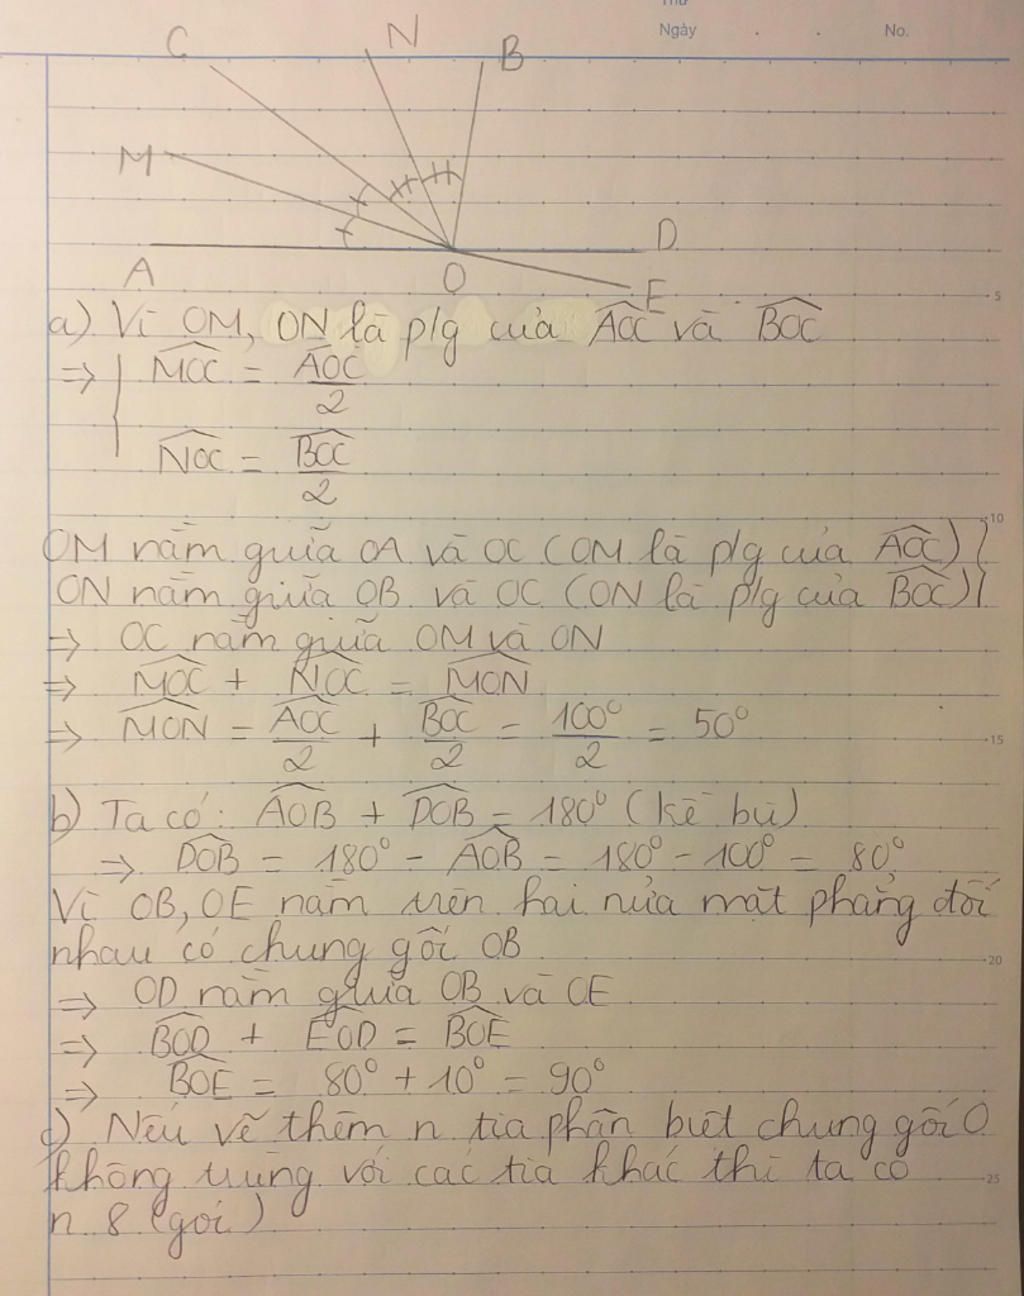 Thứ
Ngày . . No.
C N B
M
A O D
E
a) Vì OM, ON là p/g của AOC và BOC
=> MOC = AOC/2
NOC = BOC/2
OM nằm giữa OA và OC (OM là p/g của AOC)
ON nằm giữa OB và OC (ON là p/g của BOC)
=> OC nằm giữa OM và ON
=> MOC + NOC = MON
=> MON = AOC/2 + BOC/2 = 100°/2 = 50°
b) Ta có: AOB + DOB = 180° (kề bù)
=> DOB = 180° - AOB = 180° - 100° = 80°
Vì OB, OE nằm trên hai nửa mặt phẳng đối
nhau có chung gốc OB
=> OD nằm giữa OB và OE
=> BOD + EOD = BOE
=> BOE = 80° + 10° = 90°
c) Nếu vẽ thêm n tia phân biệt chung gốc O
không trùng với các tia khác thì ta có
n 8 (góc)
5
10
15
20
25